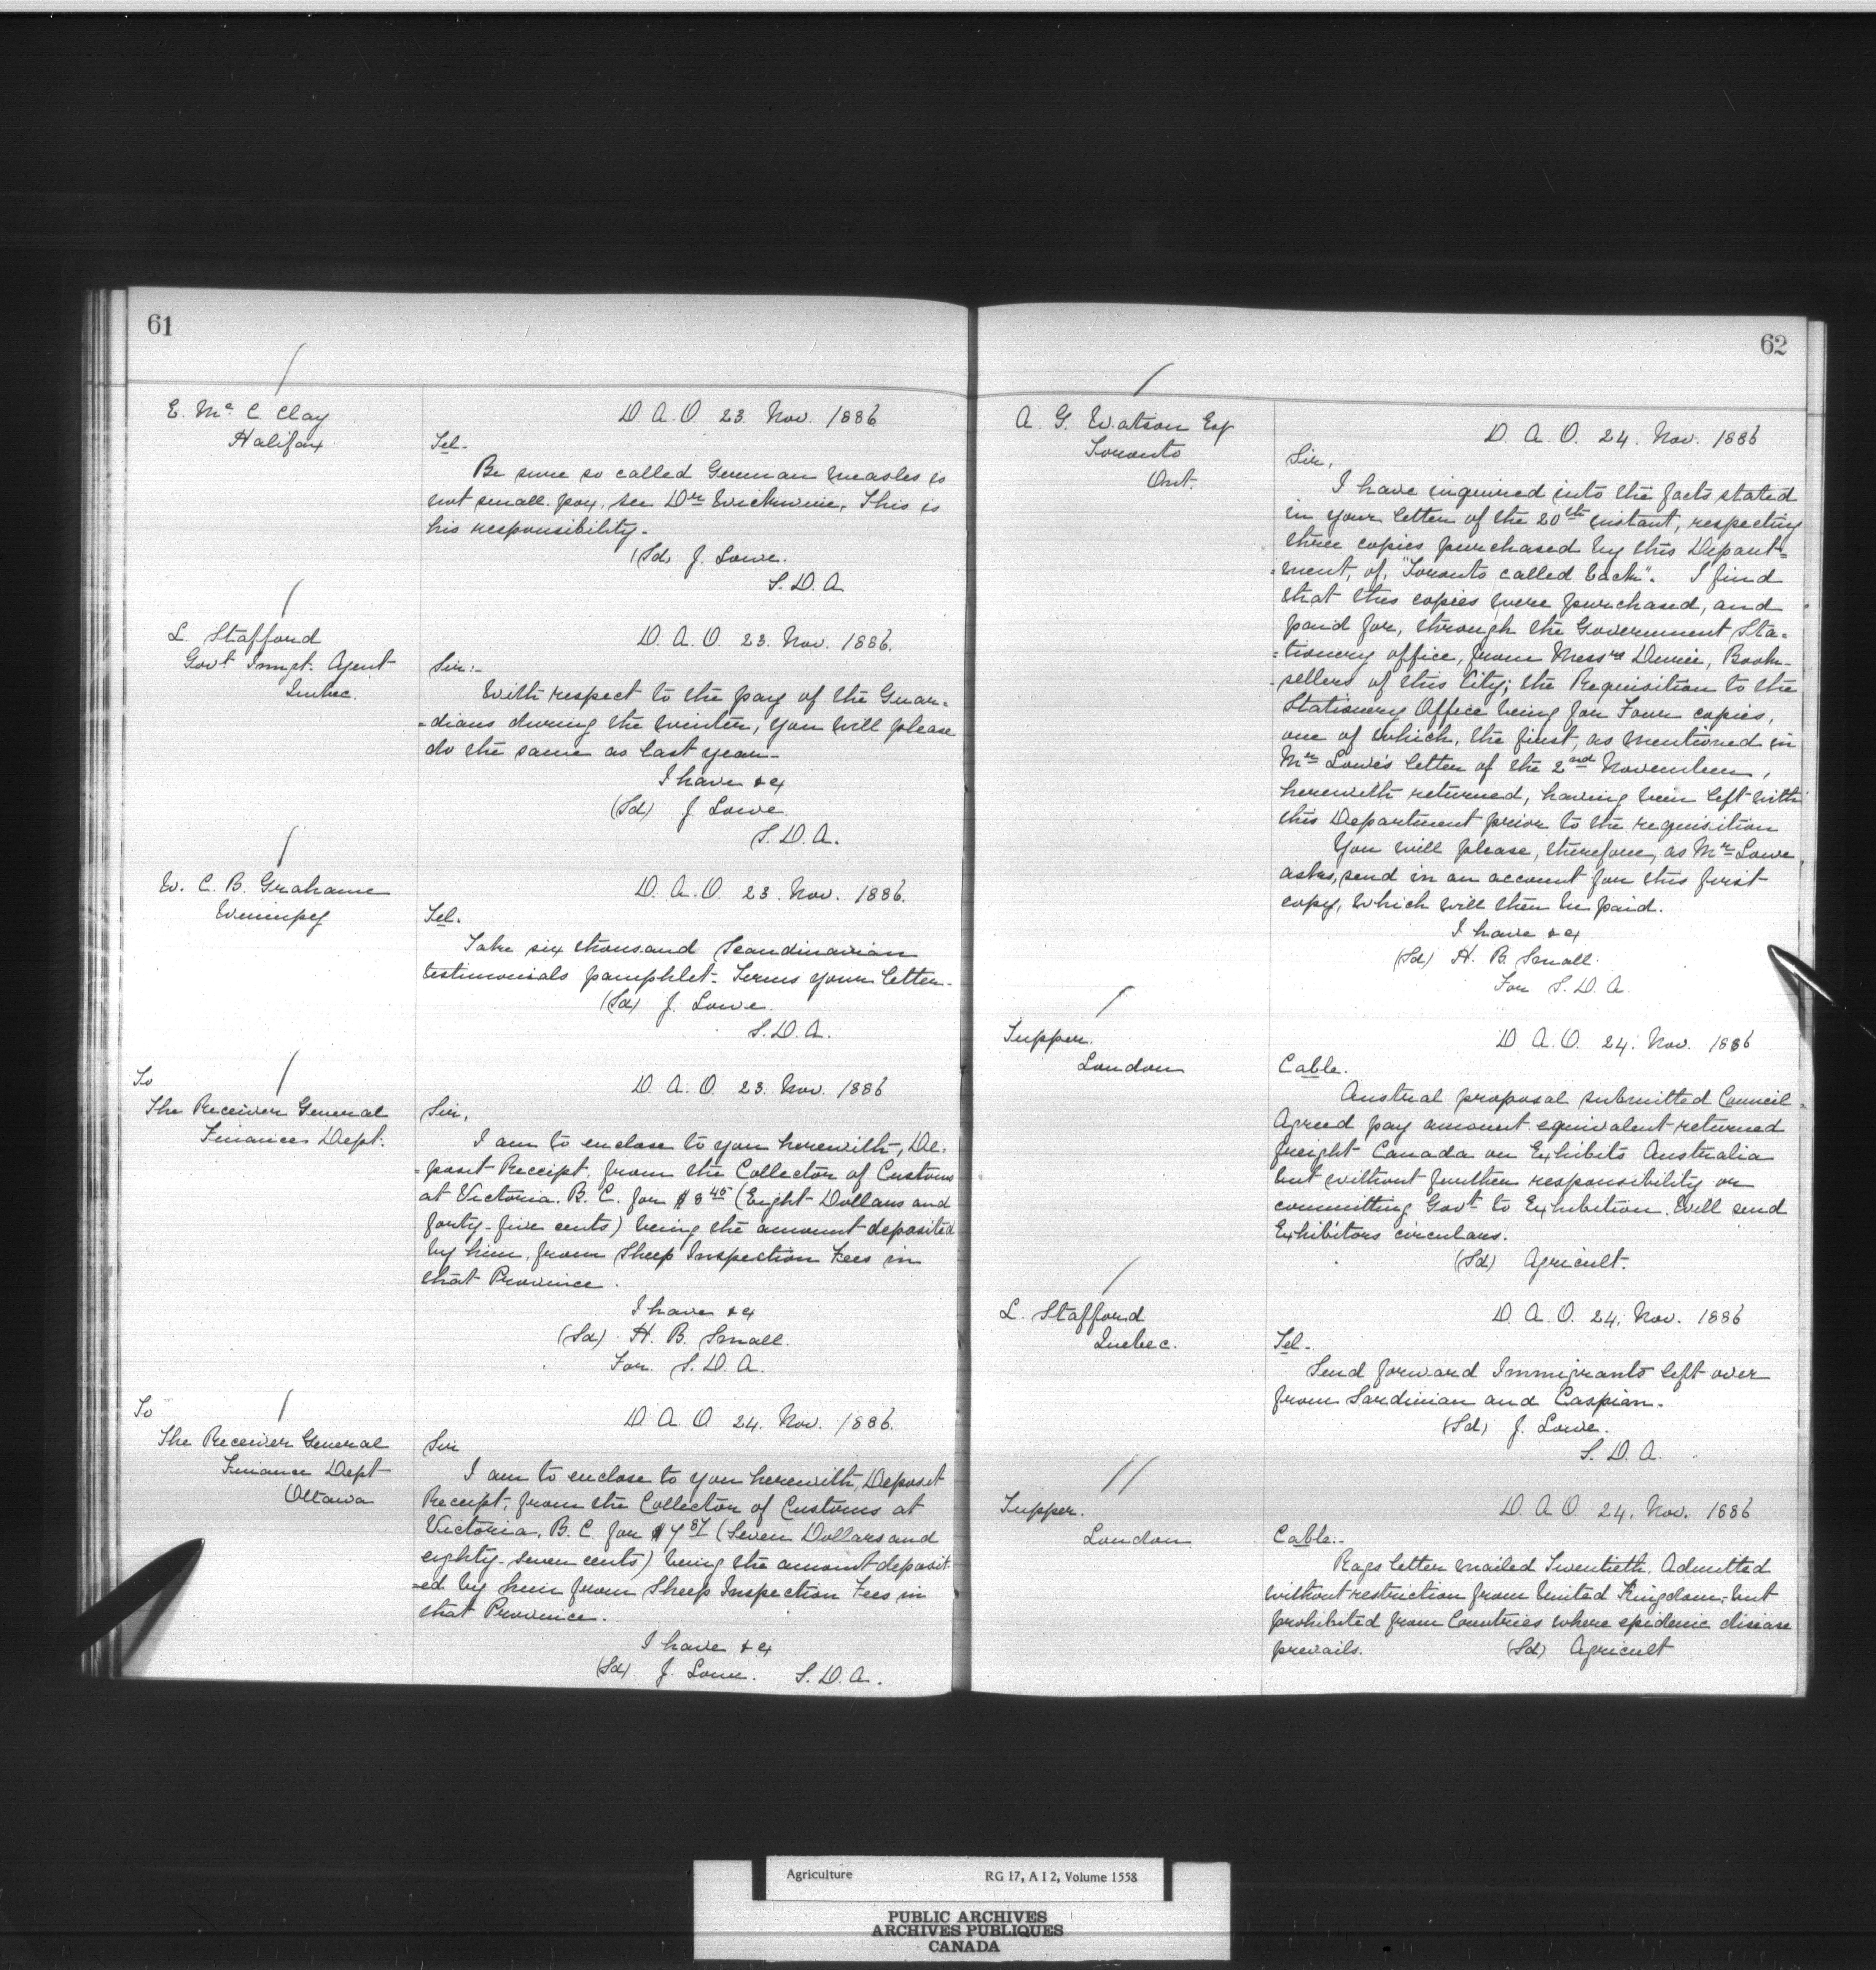 61
E. Mc. C. Clay
Halifax
D. A. O 23. Nov. 1886
Tel.
Be sure so called German measles is
not small pox, see Dr Wickwire, This is
his responsibility.
(Sd) J. Lowe.
S. D. A
L. Stafford
Govt Immgt. Agent
Quebec.
D. A. O. 23. Nov. 1886.
Sir:-
With respect to the pay of the Guar=
=dians during the winter, you will please
do the same as last year-
I have &c
(Sd) J Lowe
S. D. A.
W. C. B. Grahame
Winnipeg
D. A. O. 23. Nov. 1886.
Tel.
Take six thousand Scandinavian
testimonials pamphlet- Terms your letter-
(Sd) J. Lowe.
S. D. A.
To
The Receiver General
Finance Dept.
D. A. O. 23. Nov. 1886
Sir,
I am to enclose to you herewith, De=
=posit Receipt, from the Collector of Customs
at Victoria. B. C. for $8 45 (Eight Dollars and
forty-five cents) being the amount deposited
by him, from Sheep Inspection Fees in
that Province.
I have &c
(Sd) H. B. Small.
For. S. D. A.
To
The Receiver General
Finance Dept
Ottawa
D. A. O. 24. Nov. 1886.
Sir
I am to enclose to you herewith, Deposit
Receipt, from the Collector of Customs at
Victoria, B. C. for $7 87 (Seven Dollars and
eighty-seven cents) being the amount deposit-
=ed by him from Sheep Inspection Fees in
that Province.
I have &c
(Sd) J. Lowe. S. D. A.
62
A. G. Watson Esq
Toronto
Ont.
D. A. O. 24. Nov. 1886
Sir,
I have inquired into the facts stated
in your letter of the 20th instant, respecting
three copies purchased by this Depart=
=ment, of, "Toronto called back". I find
that this copies were purchased, and
paid for, through the Government Sta=
=tionery office, from Messrs Durie, Book-
-sellers of this City; the Requisition to the
Stationery Office being for Four copies,
one of which, the first, as mentioned in
Mr Lowe's letter of the 2nd November,
herewith returned, having been left with
this Department prior to the requisition
You will please, therefore, as Mr Lowe
asks, send in an account for this first
copy, which will then be paid.
I have &c
(Sd) H. B. Small.
For S. D. A.
Tupper.
London
D. A. O. 24. Nov. 1886
Cable.
Austral proposal submitted Council-
Agreed pay amount equivalent returned
freight Canada on Exhibits Australia
but without further responsibility or
committing Govt to Exhibition. Will send
Exhibitors circulars.
(Sd) Agricult.
L. Stafford
Quebec.
D. A. O. 24. Nov. 1886
Tel-
Send forward Immigrants left over
from Sardinian and Caspian.
(Sd) J. Lowe.
S. D. A.
Tupper.
London.
D. A. O. 24. Nov. 1886
Cable:-
Rags letter mailed Twentieth. Admitted
without restriction from United Kingdom, but
prohibited from Countries where epidemic disease
prevails. (Sd) Agricult
Agriculture RG 17, A I 2, Volume 1558
PUBLIC ARCHIVES
ARCHIVES PUBLIQUES
CANADA